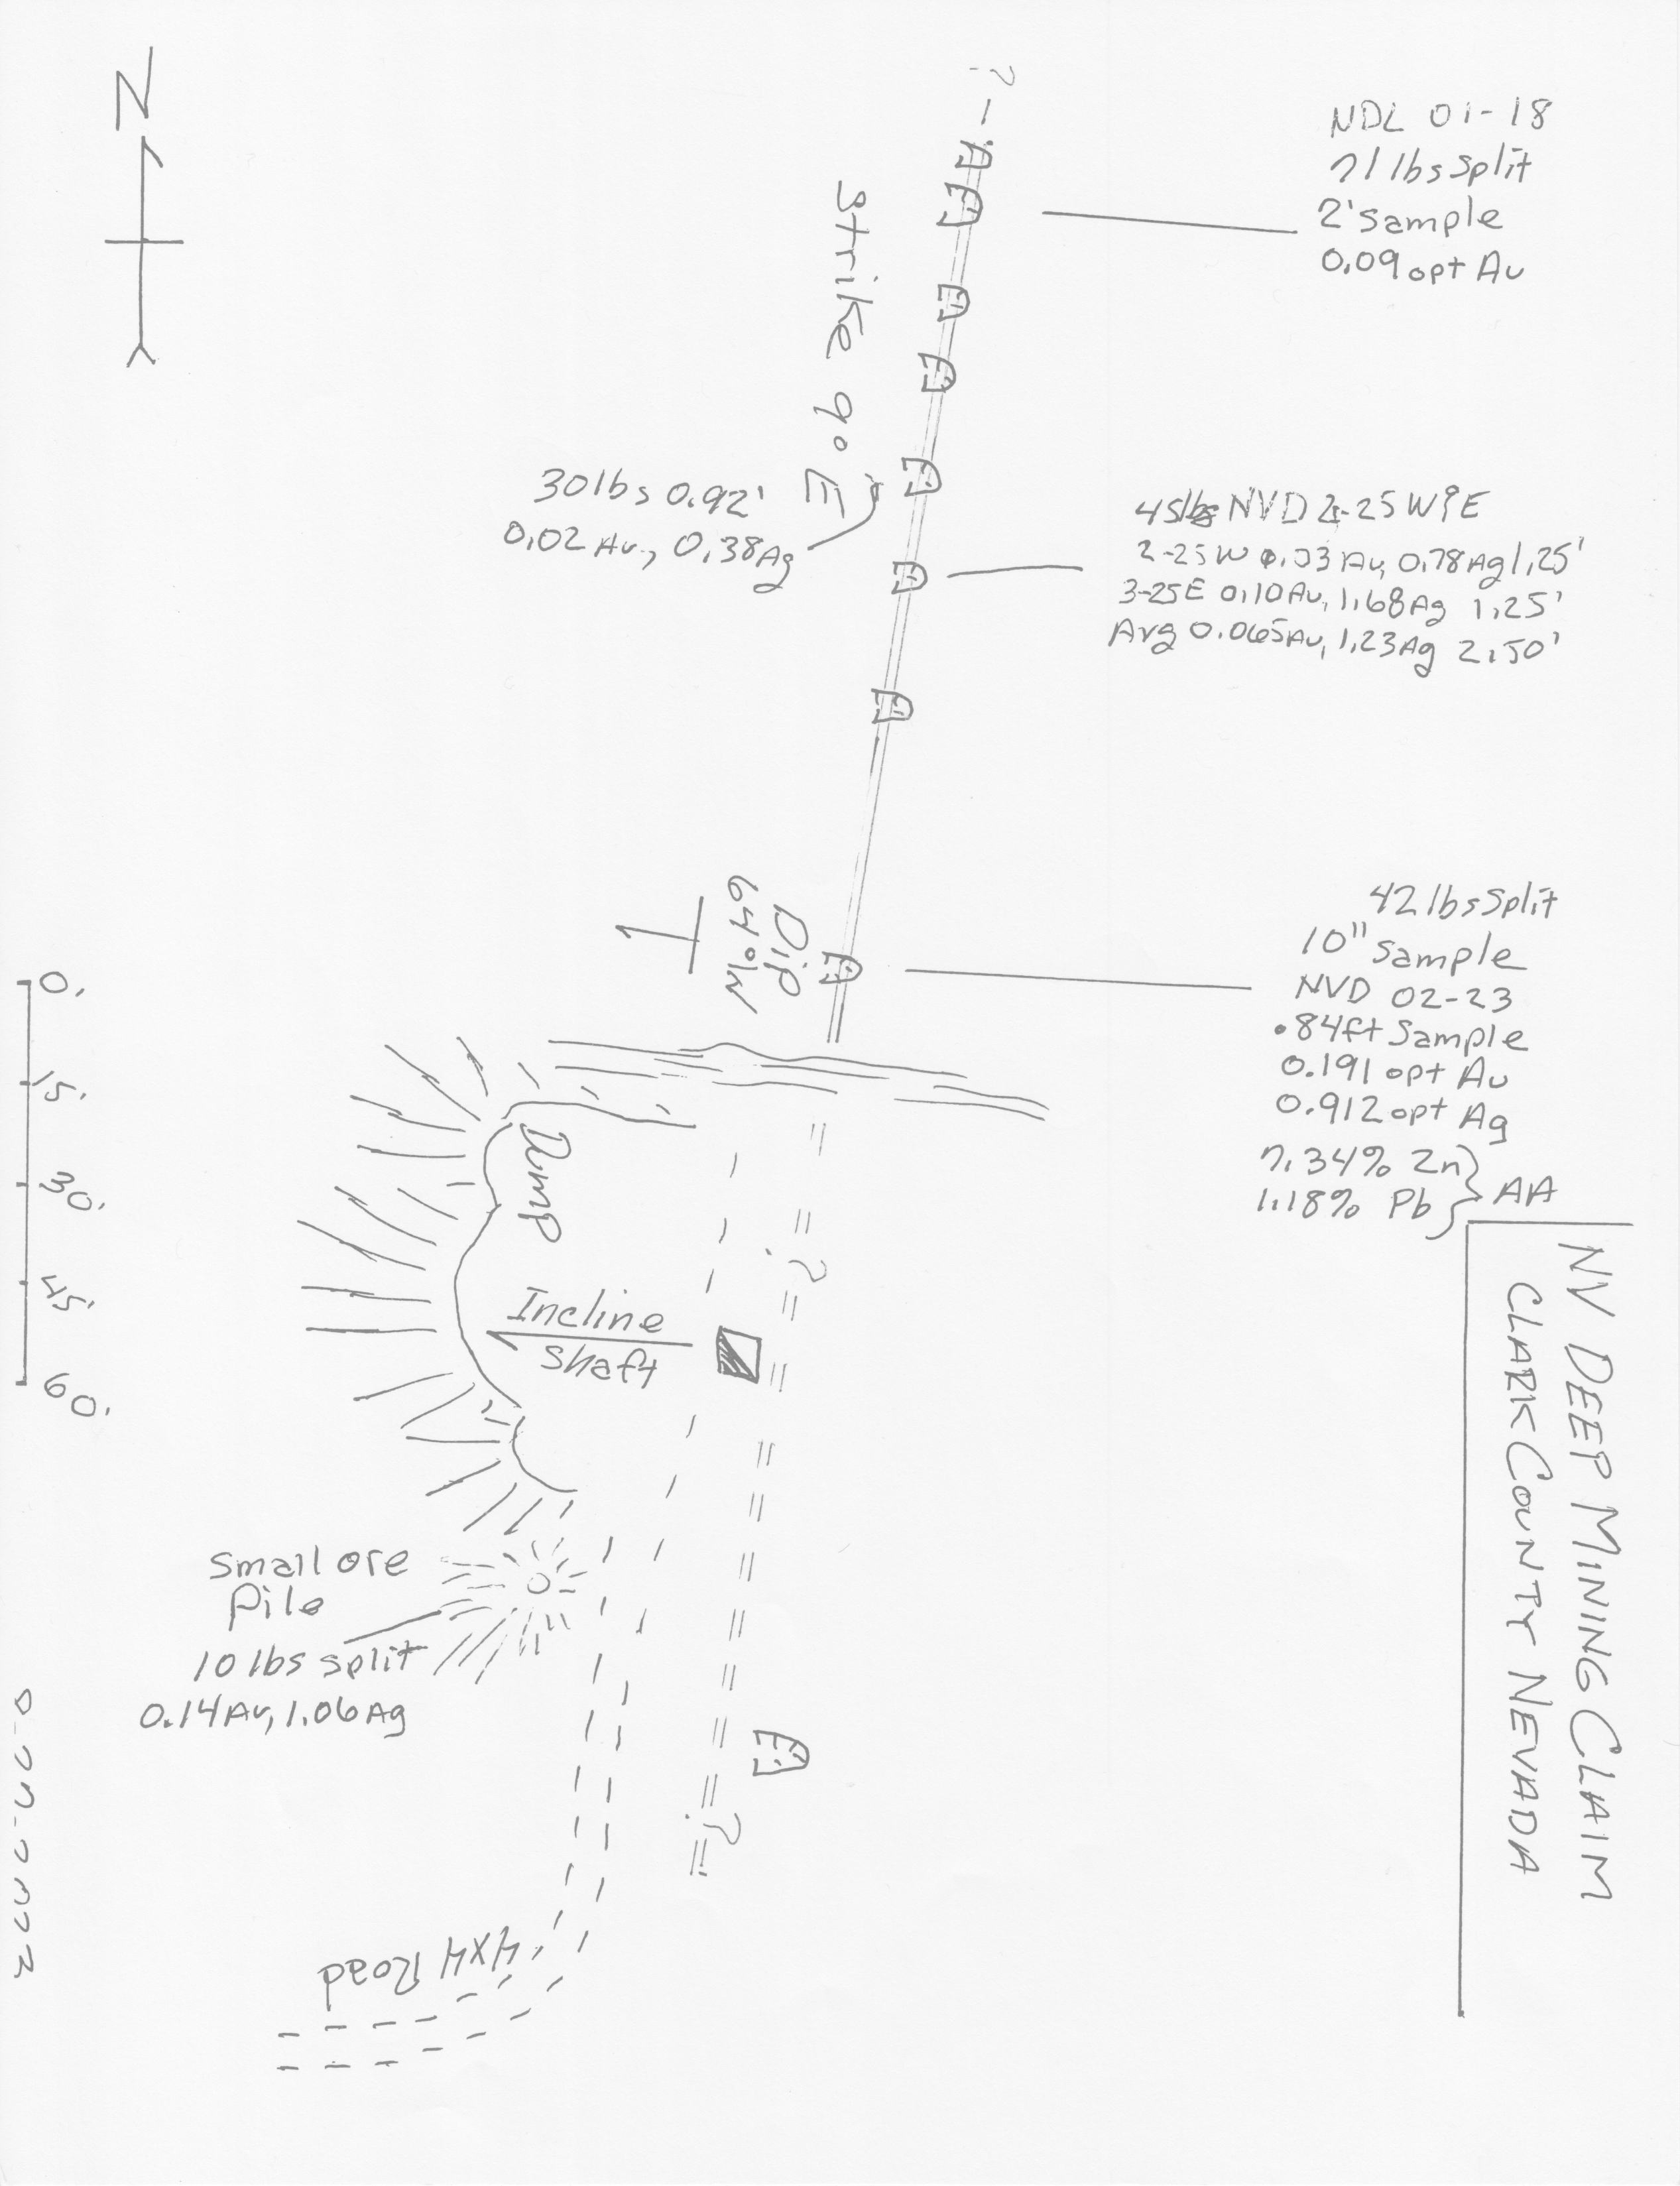 N
?
NDL 01-18
71 lbs split
2' sample
0.09 opt Au
Strike 9° E
30 lbs 0.92'
0.02 Au, 0.38 Ag
45lbs NVD 2-25 W&E
2-25 W 0.03 Au, 0.78 Ag 1.25'
3-25E 0.10 Au, 1.68 Ag 1.25'
Avg 0.065 Au, 1.23 Ag 2.50'
Dip
64° W
42 lbs Split
10" sample
NVD 02-23
.84ft Sample
0.191 opt Au
0.912 opt Ag
7.34% Zn
1.18% Pb
AA
0'
15'
30'
45'
60'
Dump
?
Incline
shaft
NV DEEP MINING CLAIM
CLARK COUNTY NEVADA
small ore
Pile
10 lbs split
0.14 Au, 1.06 Ag
?
4x4 Road